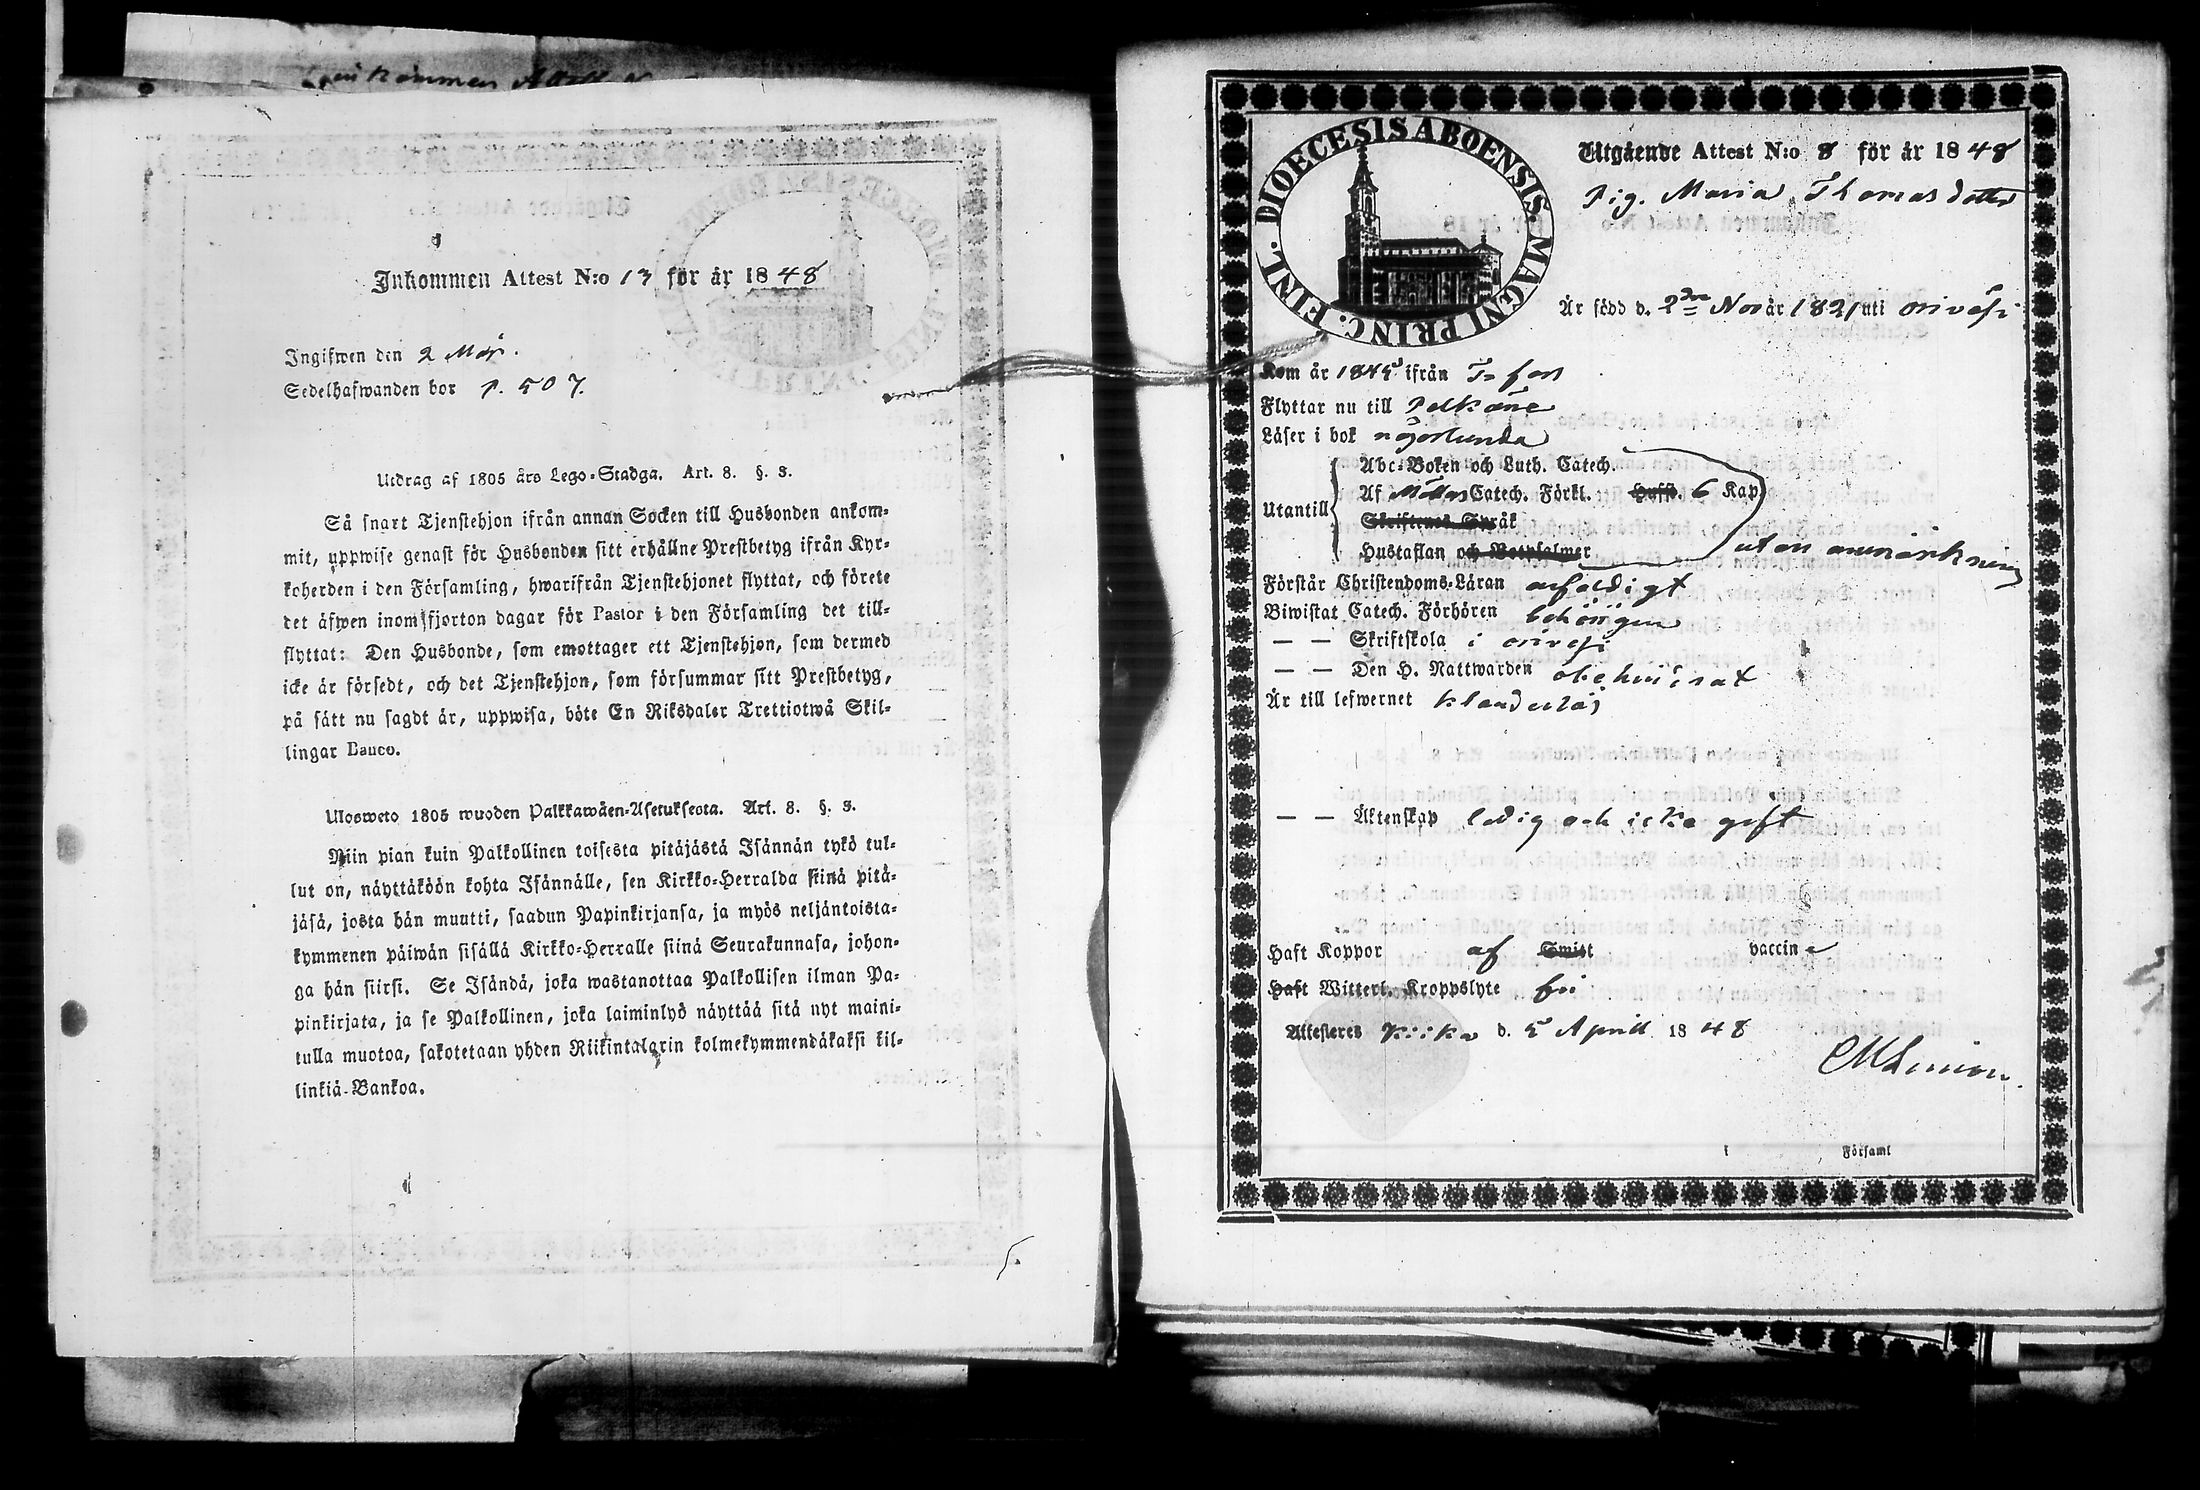 Inkommen Attest N:o 13 för år 1848
Ingifwen den 2 Maj.
Sedelhafwanden bor p. 507.
Utdrag af 1805 års Lego-Stadga. Art. 8. §. 3.
Så snart Tjenstehjon ifrån annan Socken till Husbonden ankom-
mit, uppwise genast för Husbonden sitt erhållne Prestbetyg ifrån Kyr-
koherden i den Församling, hwarifrån Tjenstehjonet flyttat, och förete
det äfwen inom fjorton dagar för Pastor i den Församling det till-
flyttat: Den Husbonde, som emottager ett Tjenstehjon, som dermed
icke är försedt, och det Tjenstehjon, som försummar sitt Prestbetyg,
på sätt nu sagdt är, uppwisa, böte En Riksdaler Trettiotwå Skil-
lingar Banco.
Ulosweto 1805 wuoden Palkkawäen-Asetuksesta. Art. 8. §. 3.
Niin pian kuin Palkollinen toisesta pitäjästä Isännän tykö tul-
lut on, näyttäköön kohta Isännälle, sen Kirkko-Herralda siinä pitä-
jäsä, josta hän muutti, saadun Papinkirjansa, ja myös neljäntoista-
kymmenen päiwän sisällä Kirkko-Herralle siinä Seurakunnasa, johon-
ga hän siirsi. Se Isändä, joka wastanottaa Palkollisen ilman Pa-
pinkirjata, ja se Palkollinen, joka laiminlyö näyttää sitä nyt maini-
tulla muotoa, sakotetaan yhden Riikintalarin kolmekymmendäkaksi kil-
linkiä Bankoa.
DIOECESIS ABOENSIS. MAGNI PRINC. FINL.
Utgående Attest N:o 8 för år 1848
Pig. Maria Thomasdotter
Är född d. 2dra Nov år 1821 uti Orivesi
Kom år 1845 ifrån T:fors
Flyttar nu till Pelkäne
Läser i bok någorlunda
Abc-Boken och Luth. Catech.
Utantill Af Möllers Catech. Förkl. Hufst. 6 Kap.
Skriftenes Språk
Hustaflan och Botpsalmer utan anmärkning
Förstår Christendoms-Läran enfaldigt
Biwistat Catech. Förhören behörigen
— — Skriftskola i Orivesi
— — Den H. Nattwarden obehindrat
Är till lefwernet klanderlös
— — Äktenskap ledig och icke gift
Haft Koppor af Smitt vaccine
Haft Witterl. Kroppslyte fri
Attesteres Kiika d. 5 April 1848
i Församl